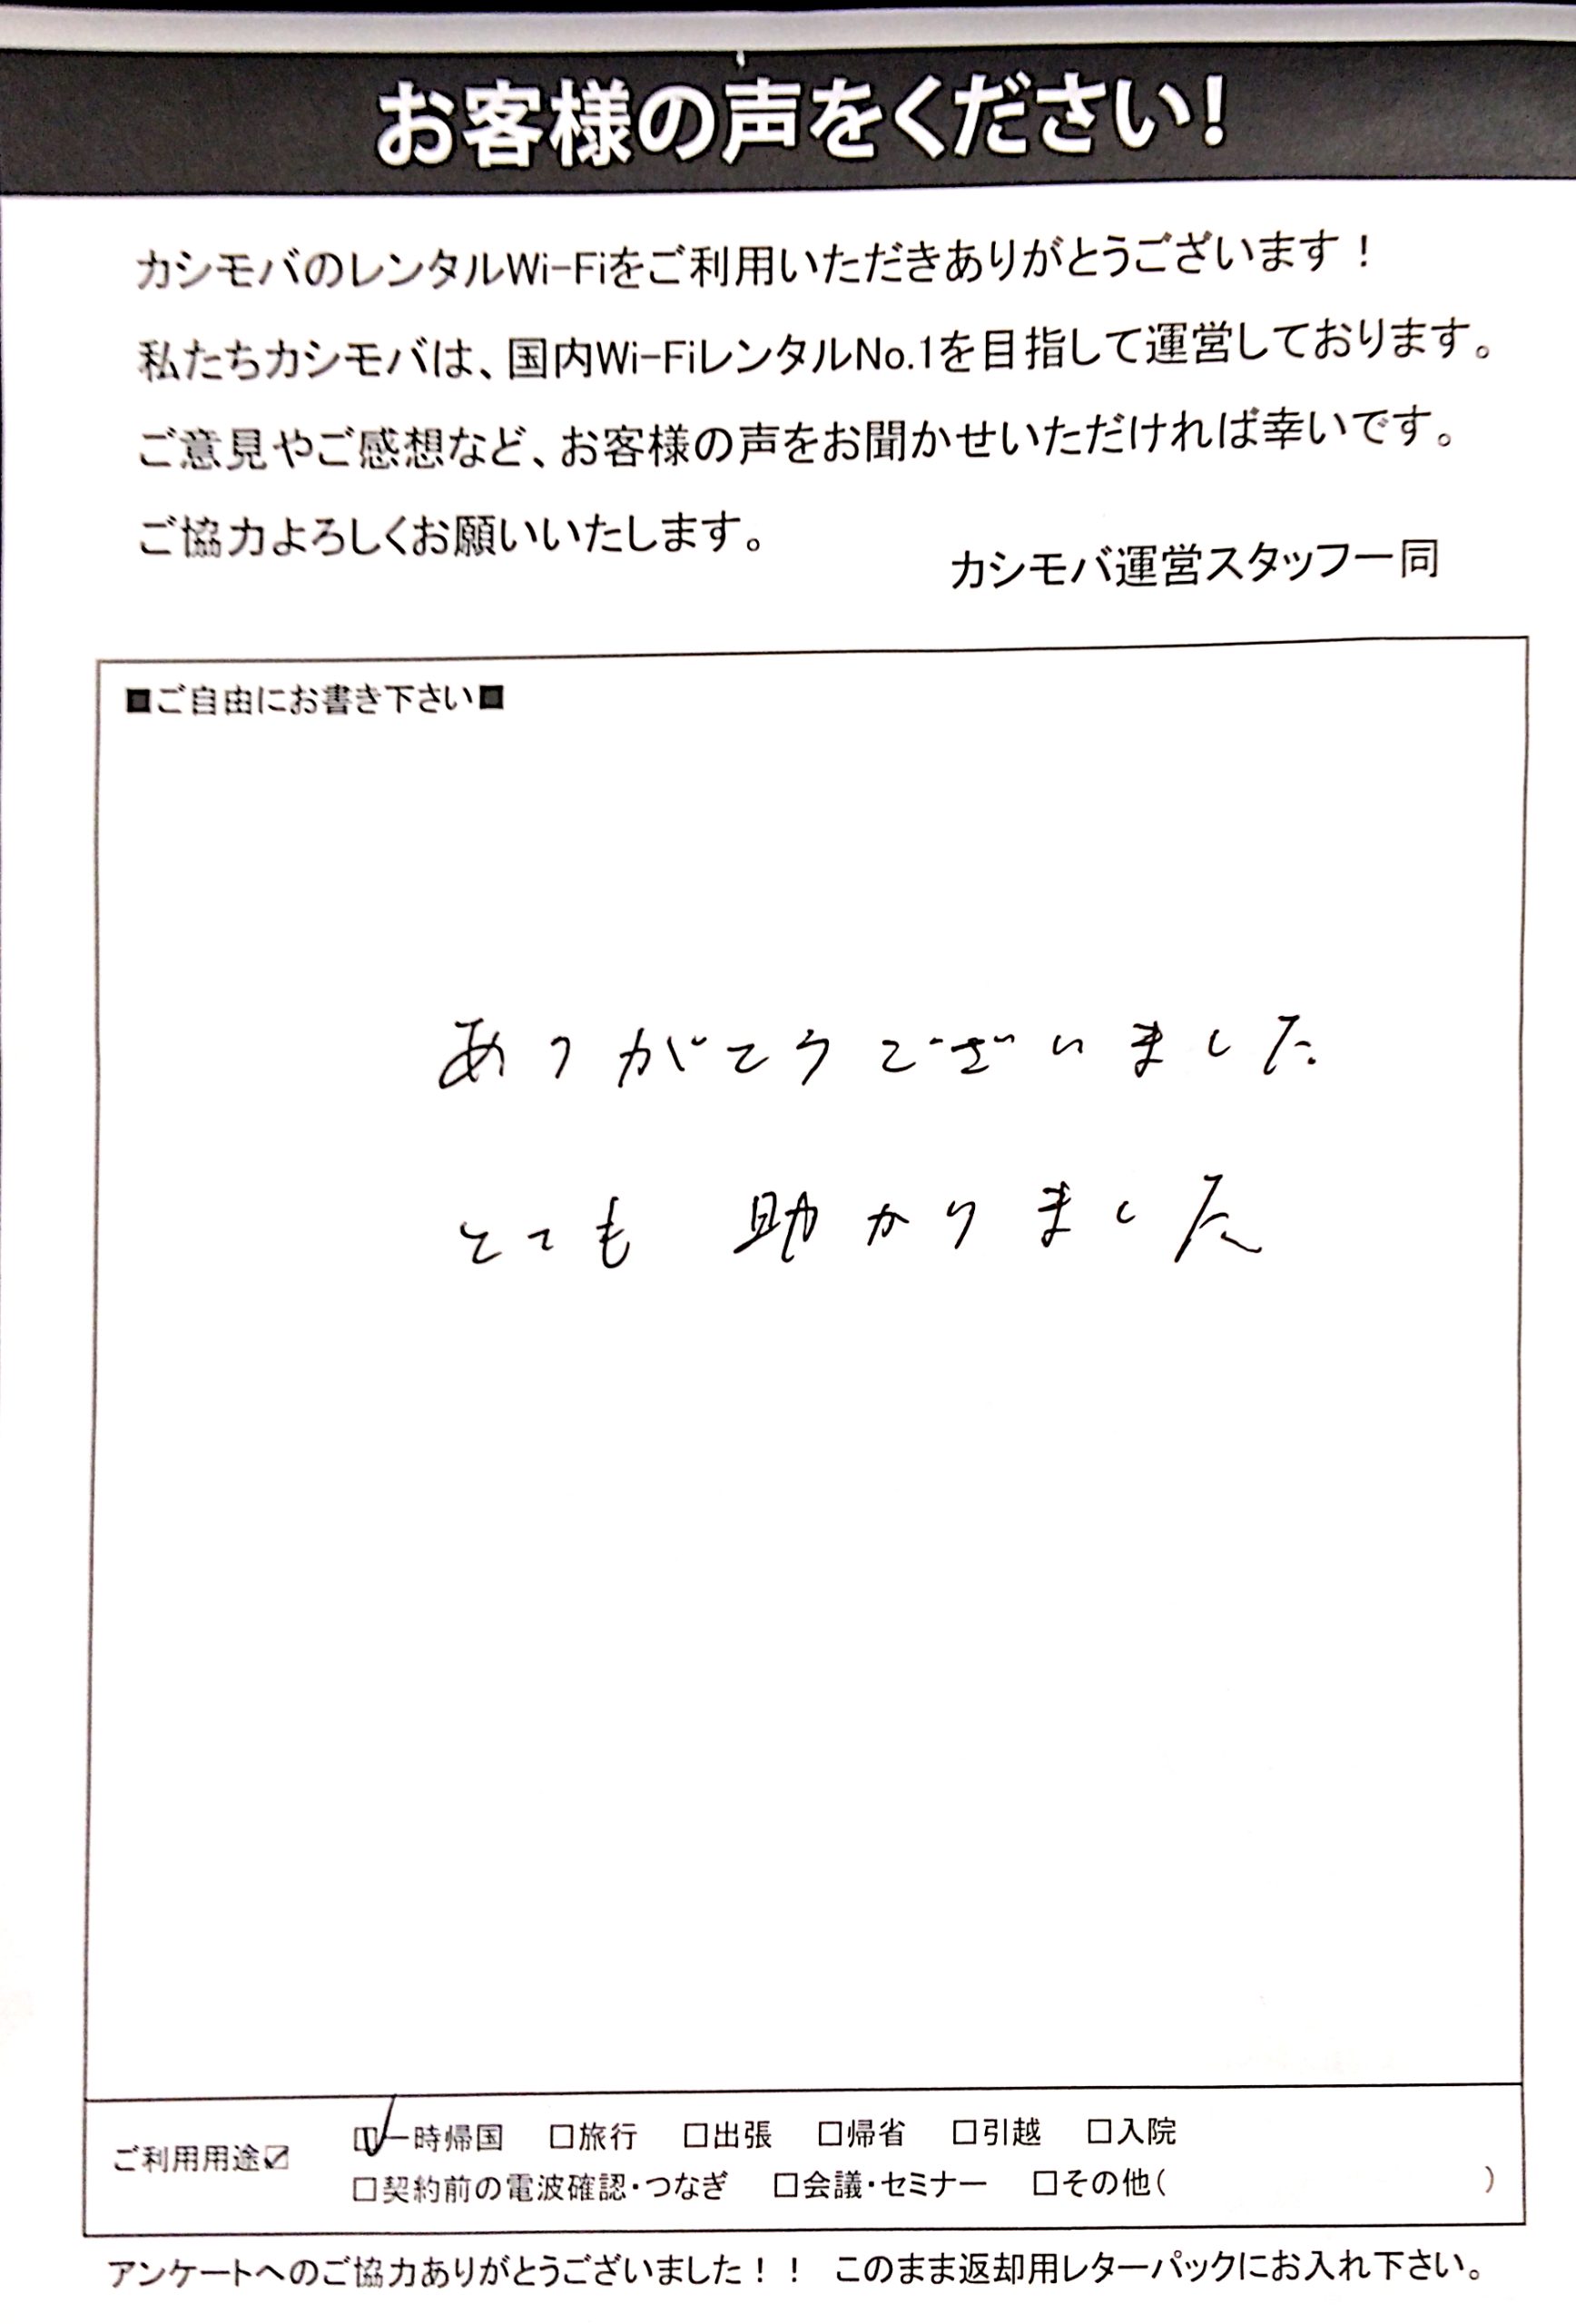 お客様の声をください!
カシモバのレンタルWi-Fiをご利用いただきありがとうございます！
私たちカシモバは、国内Wi-FiレンタルNo.1を目指して運営しております。
ご意見やご感想など、お客様の声をお聞かせいただければ幸いです。
ご協力よろしくお願いいたします。
カシモバ運営スタッフ一同
■ご自由にお書き下さい■
ありがとうございました
とても 助かりました
ご利用用途☑ ☑一時帰国 □旅行 □出張 □帰省 □引越 □入院
□契約前の電波確認・つなぎ □会議・セミナー □その他( )
アンケートへのご協力ありがとうございました！！ このまま返却用レターパックにお入れ下さい。